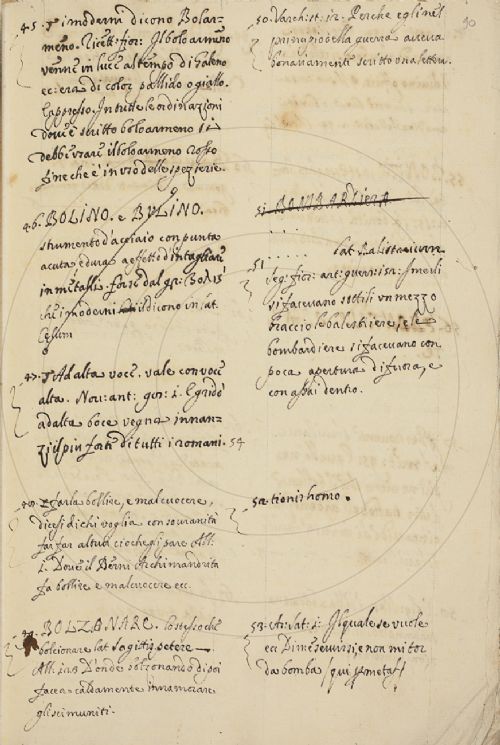 45. I moderni dicono Bolar-
meno. Ricett: fior: Il bolo armeno
venne in luce al tempo di Galeno
ed era di color pallido o giallo.
Appresso. In tutte le ordinazioni
dove è scritto bolo armeno si
debbe usare il bolo armeno rosso
fine che è in uso delle spezierie.
46. BOLINO. e BULINO.
strumento d'acciaio con punta
acuta ed ugn. a effetto d'intagliare
in metalli. forse dal gr: Βολίς
ch'i moderni il dicono in lat.
Celum
47. Ad alta voce. vale con voce
alta. Nov: ant: gon: 1. E gridò
ad alta boce vegna innan-
zi il più forte di tutti i romani. 54
48. E farla bollire, e mal cuocere,
dicesi di chi voglia con sovranità
far far altrui cioche gli pare. All.
1. Dove il Berni Archimandrita
fa bollire e mal cuocere ecc.
49. BOLZONARE. lo stesso che
bolcionare lat sagittis petere
All. 128 D'onde bolzonando di poi
facea caldamente innamorare
gli scimuniti.
90
50. Varch. st. 12. Perche egli nel
principio della guerra aveva
bonariamente scritto una lettera.
51 BOMBARDIERA
lat. Balistrariae
51
Seg: fior: art: guerr: 152: I merli
si facevano sottili un mezzo
braccio le balestriere, e le
bombardiere si facevano con
poca apertura di fuora, e
con assai dentro.
52. tionis homo.
53. Ar: lat: 1: Il quale se vuole
ecc Dime servirsi, e non mi tor
da bomba (qui p metaf)